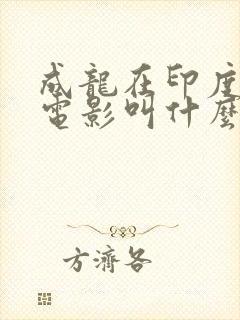 成龍在印度
電影叫什麼
方濟各